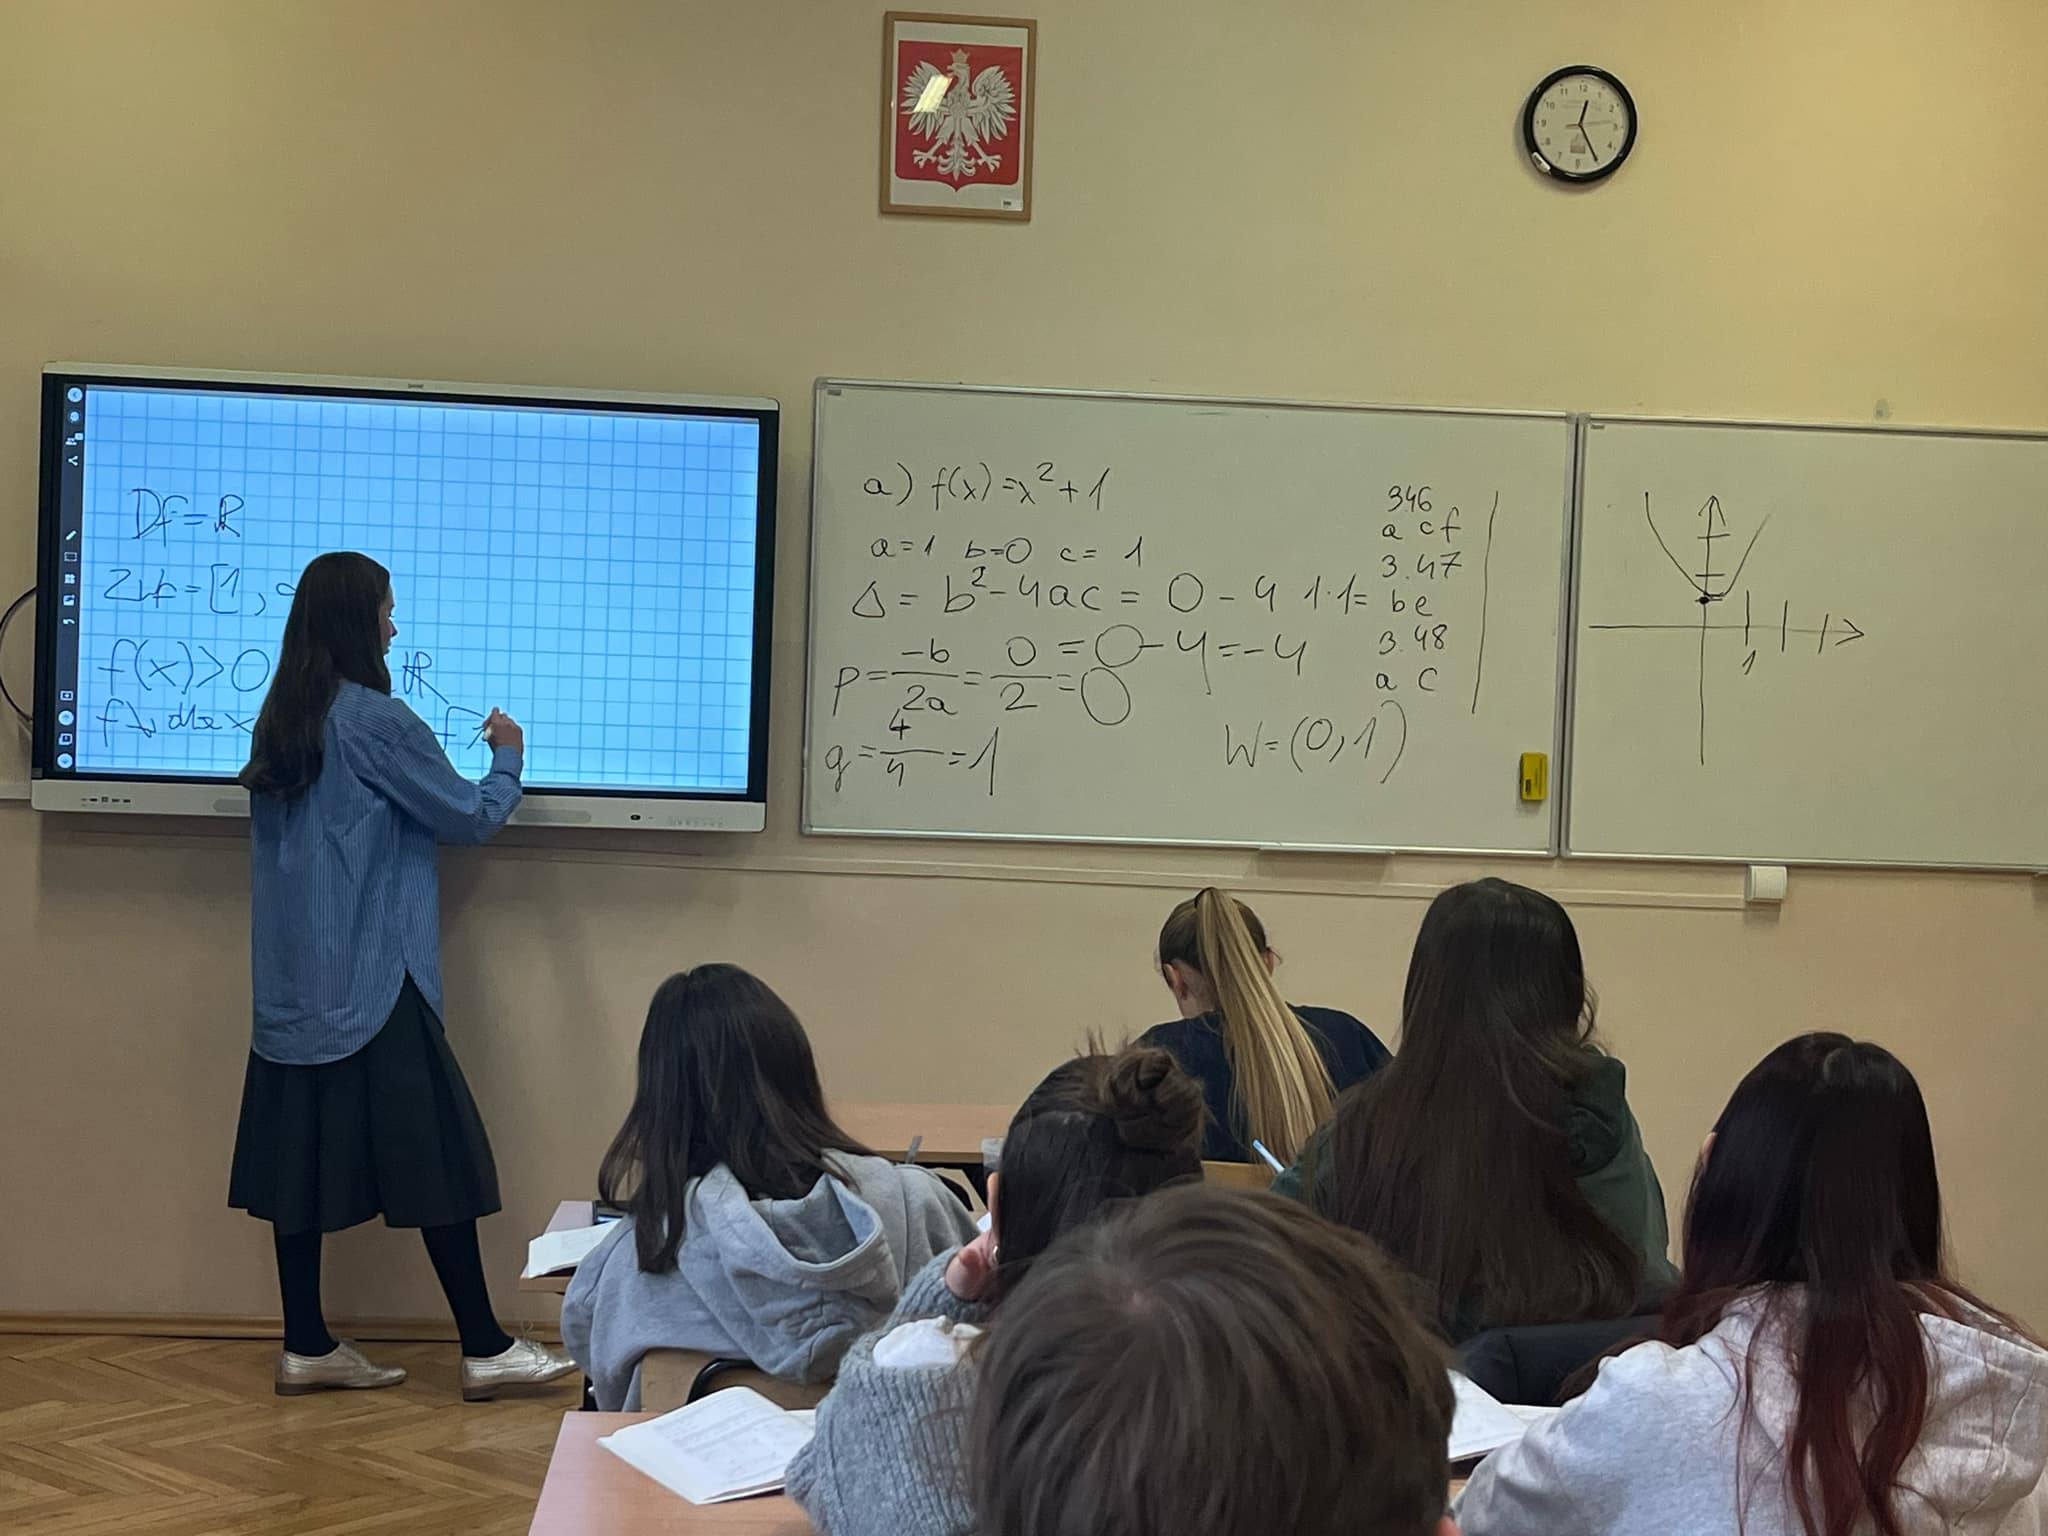 Df=R
Zwf=[1,
f(x)>0 R
dla x
a) f(x)=x²+1
a=1 b=0 c= 1
Δ= b²-4ac = 0-4 1·1=
=0-4=-4
p= -b/2a = 0/2 = 0
q= 4/4 =1
W=(0,1)
346
a c f
3.47
b e
3.48
a c
1